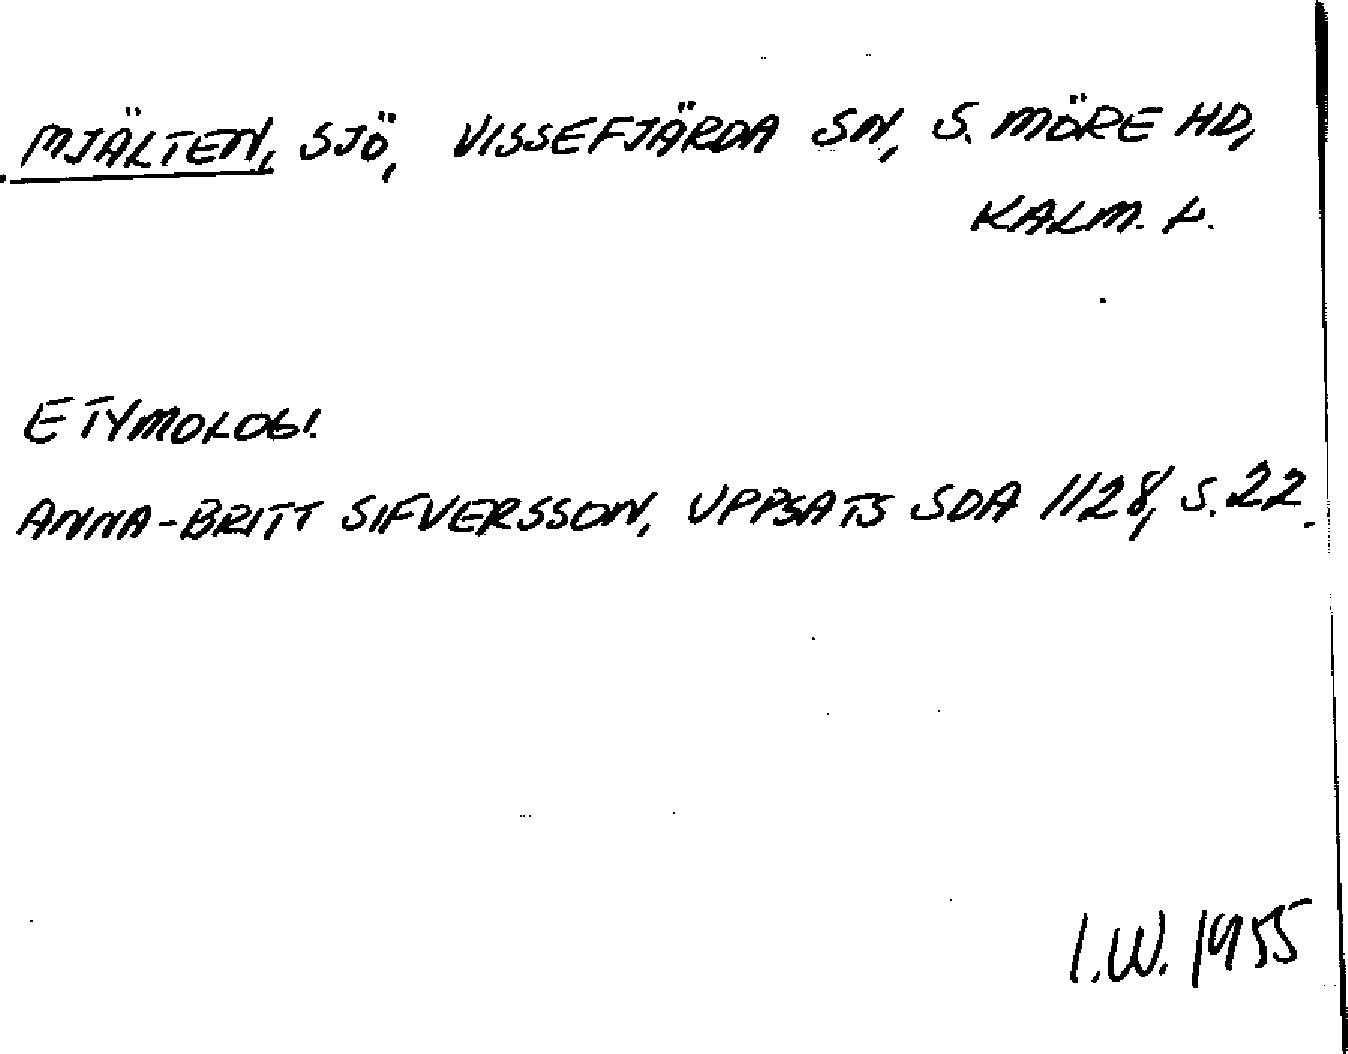 MJÄLTEN, SJÖ, VISSEFJÄRDA SN, S. MÖRE HD,
KALM. L.
ETYMOLOGI.
ANNA-BRITT SIFVERSSON, UPPSATS SDA 1128, S. 22.
I.W. 1955